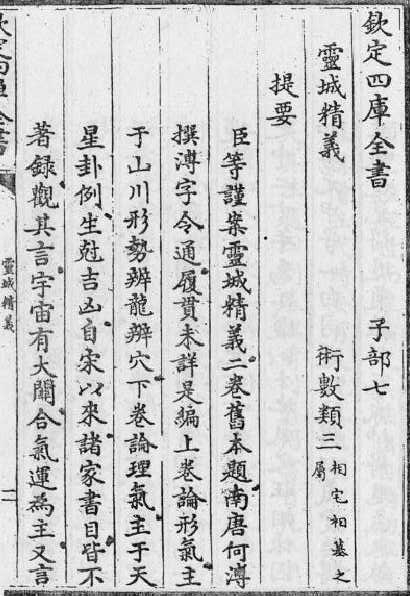 欽定四庫全書 子部七
靈城精義 術數類三 相宅相墓之屬
提要
臣等謹案靈城精義二卷舊本題南唐何溥
撰溥字令通履貫未詳是編上卷論形氣主
于山川形勢辨龍辨穴下卷論理氣主于天
星卦例生尅吉凶自宋以來諸家書目皆不
著録觀其言宇宙有大關合氣運為主又言
靈城精義
欽定四庫全書